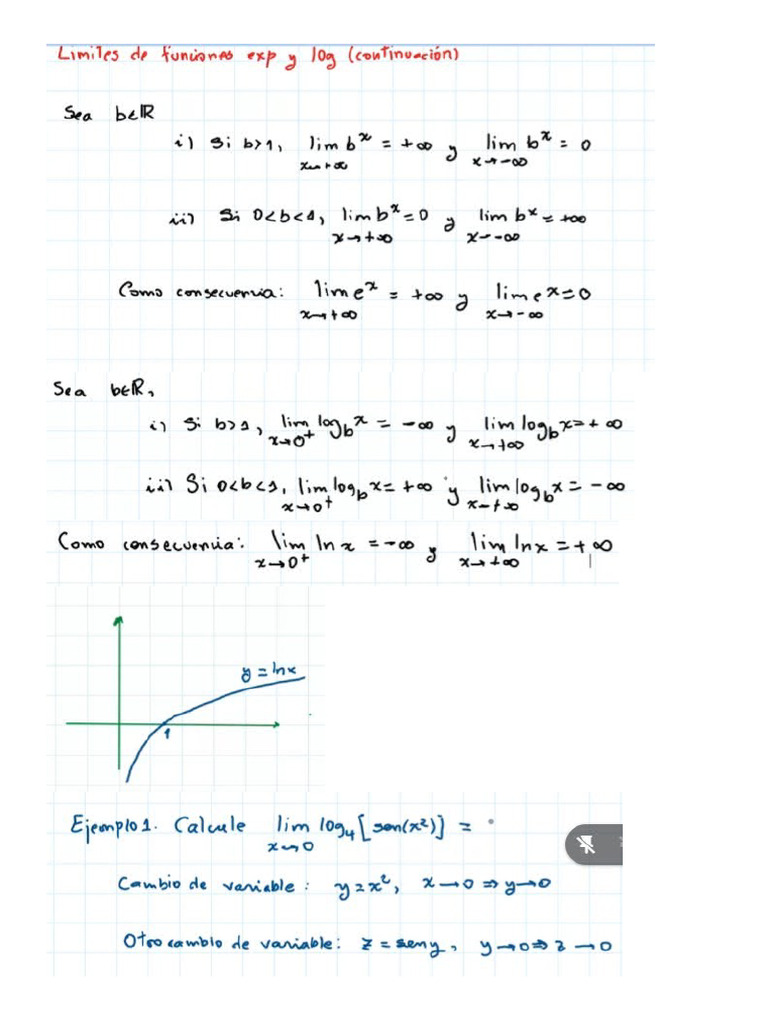 Limites de funciones exp y log (continuación)
Sea b∈ℝ
i) Si b>1, lim b^x = +∞ y lim b^x = 0
x→+∞ x→-∞
ii) Si 0<b<1, lim b^x = 0 y lim b^x = +∞
x→+∞ x→-∞
Como consecuencia: lim e^x = +∞ y lim e^x = 0
x→+∞ x→-∞
Sea b∈ℝ,
i) Si b>1, lim log_b x = -∞ y lim log_b x = +∞
x→0⁺ x→+∞
ii) Si 0<b<1, lim log_b x = +∞ y lim log_b x = -∞
x→0⁺ x→+∞
Como consecuencia: lim ln x = -∞ y lim ln x = +∞
x→0⁺ x→+∞
y = lnx
1
Ejemplo 1. Calcule lim log₄[sen(x²)] =
x→0
Cambio de variable: y=x², x→0 ⇒ y→0
Otro cambio de variable: z = seny, y→0 ⇒ z→0